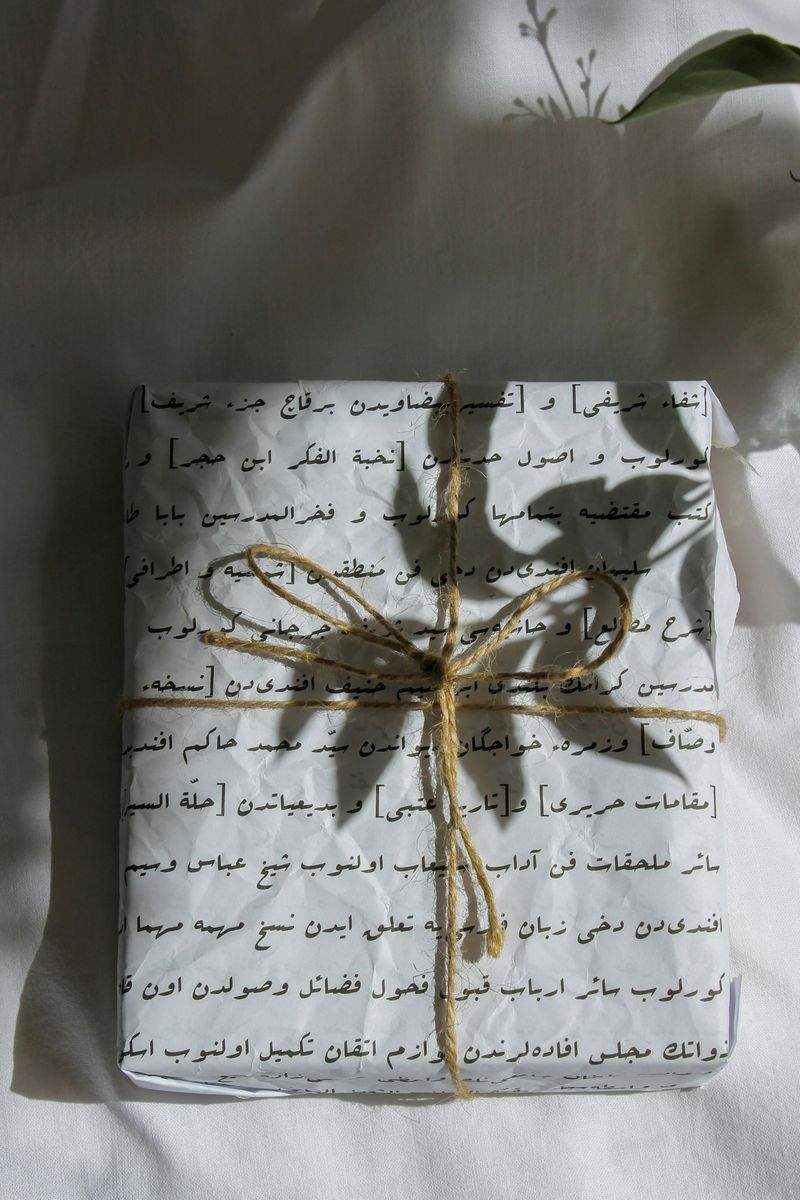 [شفاء شریفی] و [تفسیر بیضاویدن برقاچ جزء شریف]
کورلوب و اصول حدیثدن [نخبة الفکر ابن حجر] و
کتب مقتضیه بتمامها کورلوب و فخرالمدرسین بابا
سلیمان افندی‌دن دخی فن منطقدن [شمسیه و اطرافی
[شرح مطالع] و حاشیه‌سی سید شریف جرجانی کورلوب
مدرسین کرامك بلندی ابراهیم حنیف افندی‌دن [نسخهء
وصّاف] وزمرهء خواجگان دیواندن سیّد محمد حاکم
[مقامات حریری] و[تاریخ عتبی] و بدیعیاتدن [حلّة
سائر ملحقات فن آداب اولنوب شیخ عباس وسیم
افندی‌دن دخی زبان فارسی‌یه تعلق ایدن نسخ مهمه مهما
کورلوب سائر ارباب قبول فحول فضائل وصولدن اون
ذواتك مجلس افاده‌لرندن لوازم اتقان تکمیل اولنوب